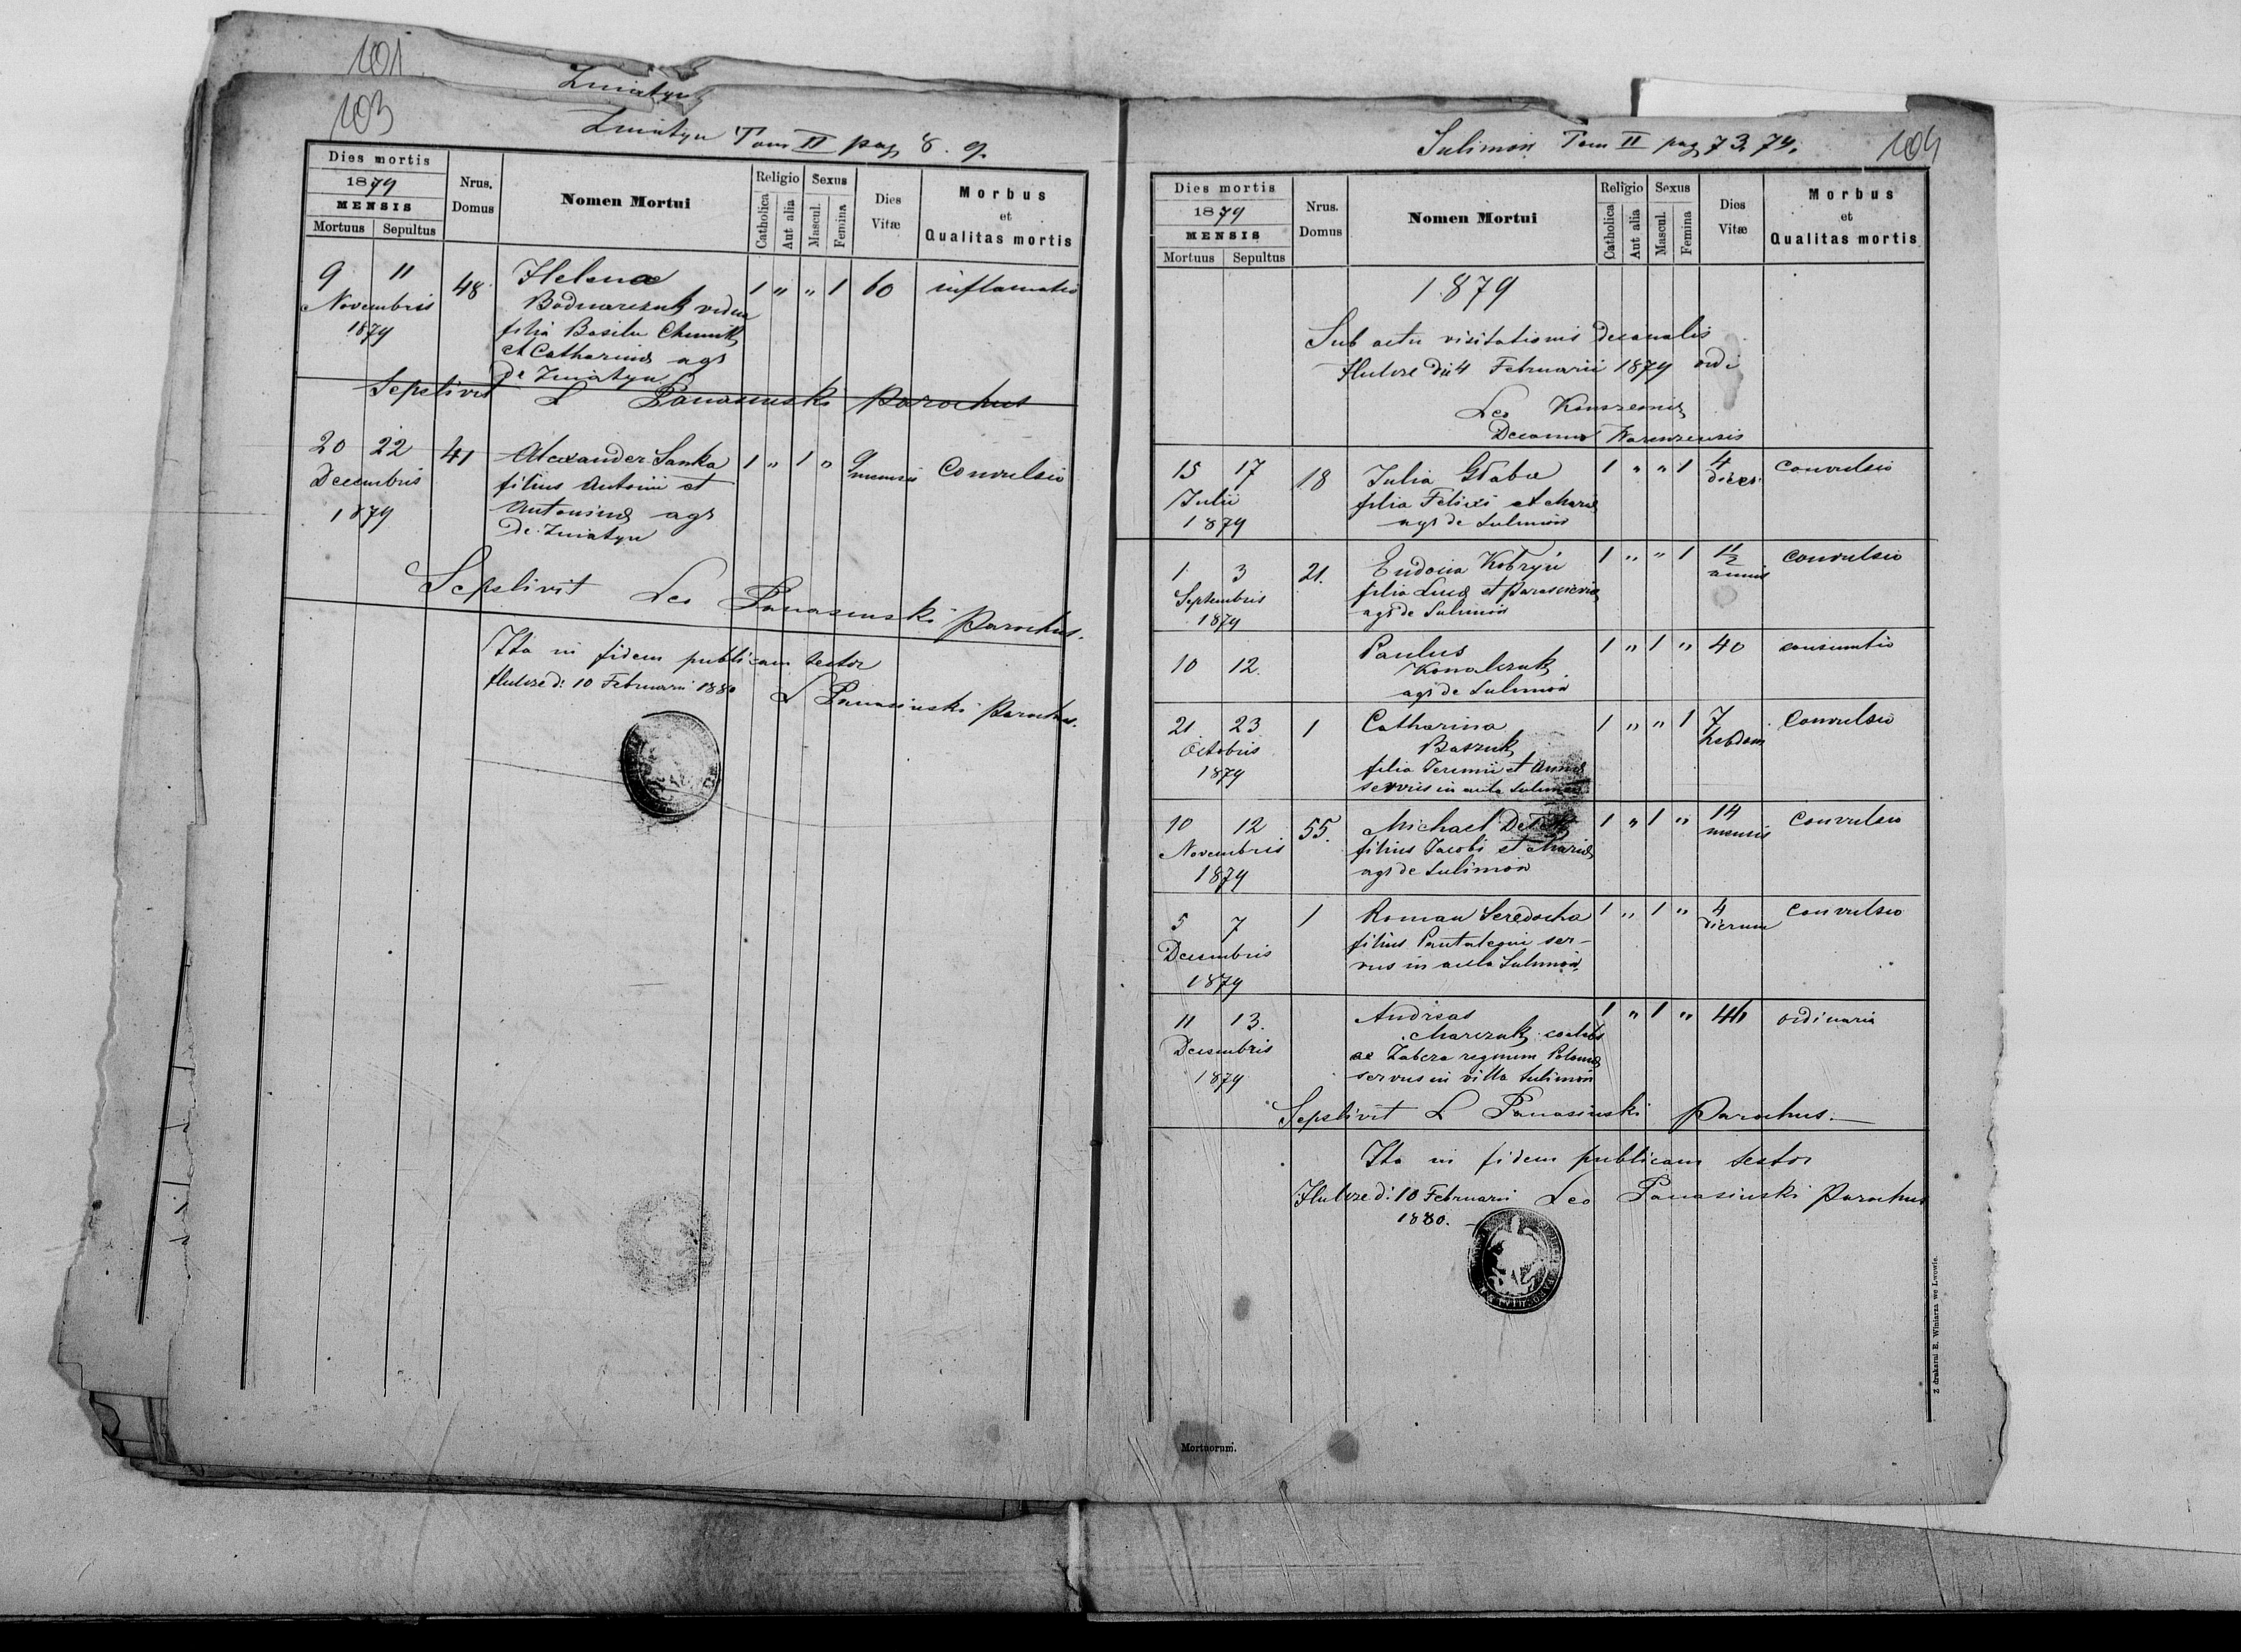 101
103
Żniatyn
Żniatyn Tom II pag 8. 9.
Dies mortis
1879
MENSIS
Mortuus Sepultus
Nrus. Domus
Nomen Mortui
Religio
Catholica
Aut alia
Sexus
Mascul.
Femina
Dies Vitæ
Morbus
et
Qualitas mortis
9 11 48 Helena 1 " " 1 60 inflamatio
Novembris Bodnarczuk vidua
1879 filia Basilii
et Catharina agr
de Żniatyn
Sepelivit L Panasinski Parochus
20 22 41 Alexander Sanka 1 " 1 " 9 Convulsio
Decembris filius Antonii et mensis
1879 Antonina agr
de Żniatyn
Sepelivit Leo Panasinski Parochus.
Ita in fidem publicam testor
Hulcze d: 10 Februarii 1880 L Panasinski Parochus.
104
Sulimow Tom II pag 73. 74.
Dies mortis
1879
MENSIS
Mortuus Sepultus
Nrus. Domus
Nomen Mortui
Religio
Catholica
Aut alia
Sexus
Mascul.
Femina
Dies Vitæ
Morbus
et
Qualitas mortis
1879
Sub actu visitationis Decanalis
Hulcze 4 Februarii 1879
Leo
Decanus
15 17 18 Julia 1 " " 1 4 Convulsio
Julii filia et Maria dies
1879 agr de Sulimow
1 3 21. Eudocia Kobryn 1 " " 1 1 1/2 Convulsio
Septembris filia Luca et Parascevia annis
1879 agr de Sulimow
10 12. Paulus 1 " 1 " 40 consumtio
Kowalczuk
agr de Sulimow
21 23 1 Catharina 1 " " 1 7 Convulsio
Octobris hebdom
1879 filia Jeremii et Anna
servus in aula Sulimow
10 12 55. Michael 1 " 1 " 14 Convulsio
Novembris filius Jacobi et Maria mensis
1879 agr de Sulimow
5 7 1 Roman Seredocha 1 " 1 " 4 Convulsio
Decembris filius Pantalegmi ser- dierum
1879 vus in aula Sulimow
11 13. Andreas 1 " 1 " ordinaria
Decembris Marczuk
1879 regnum Polonia
servus in villa Sulimow
Sepelivit L Panasinski Parochus.
Ita in fidem publicam testor
Hulcze d: 10 Februarii Leo Panasinski Parochus
1880.
Mortuorum.
Z drukarni E. Winiarza we Lwowie.